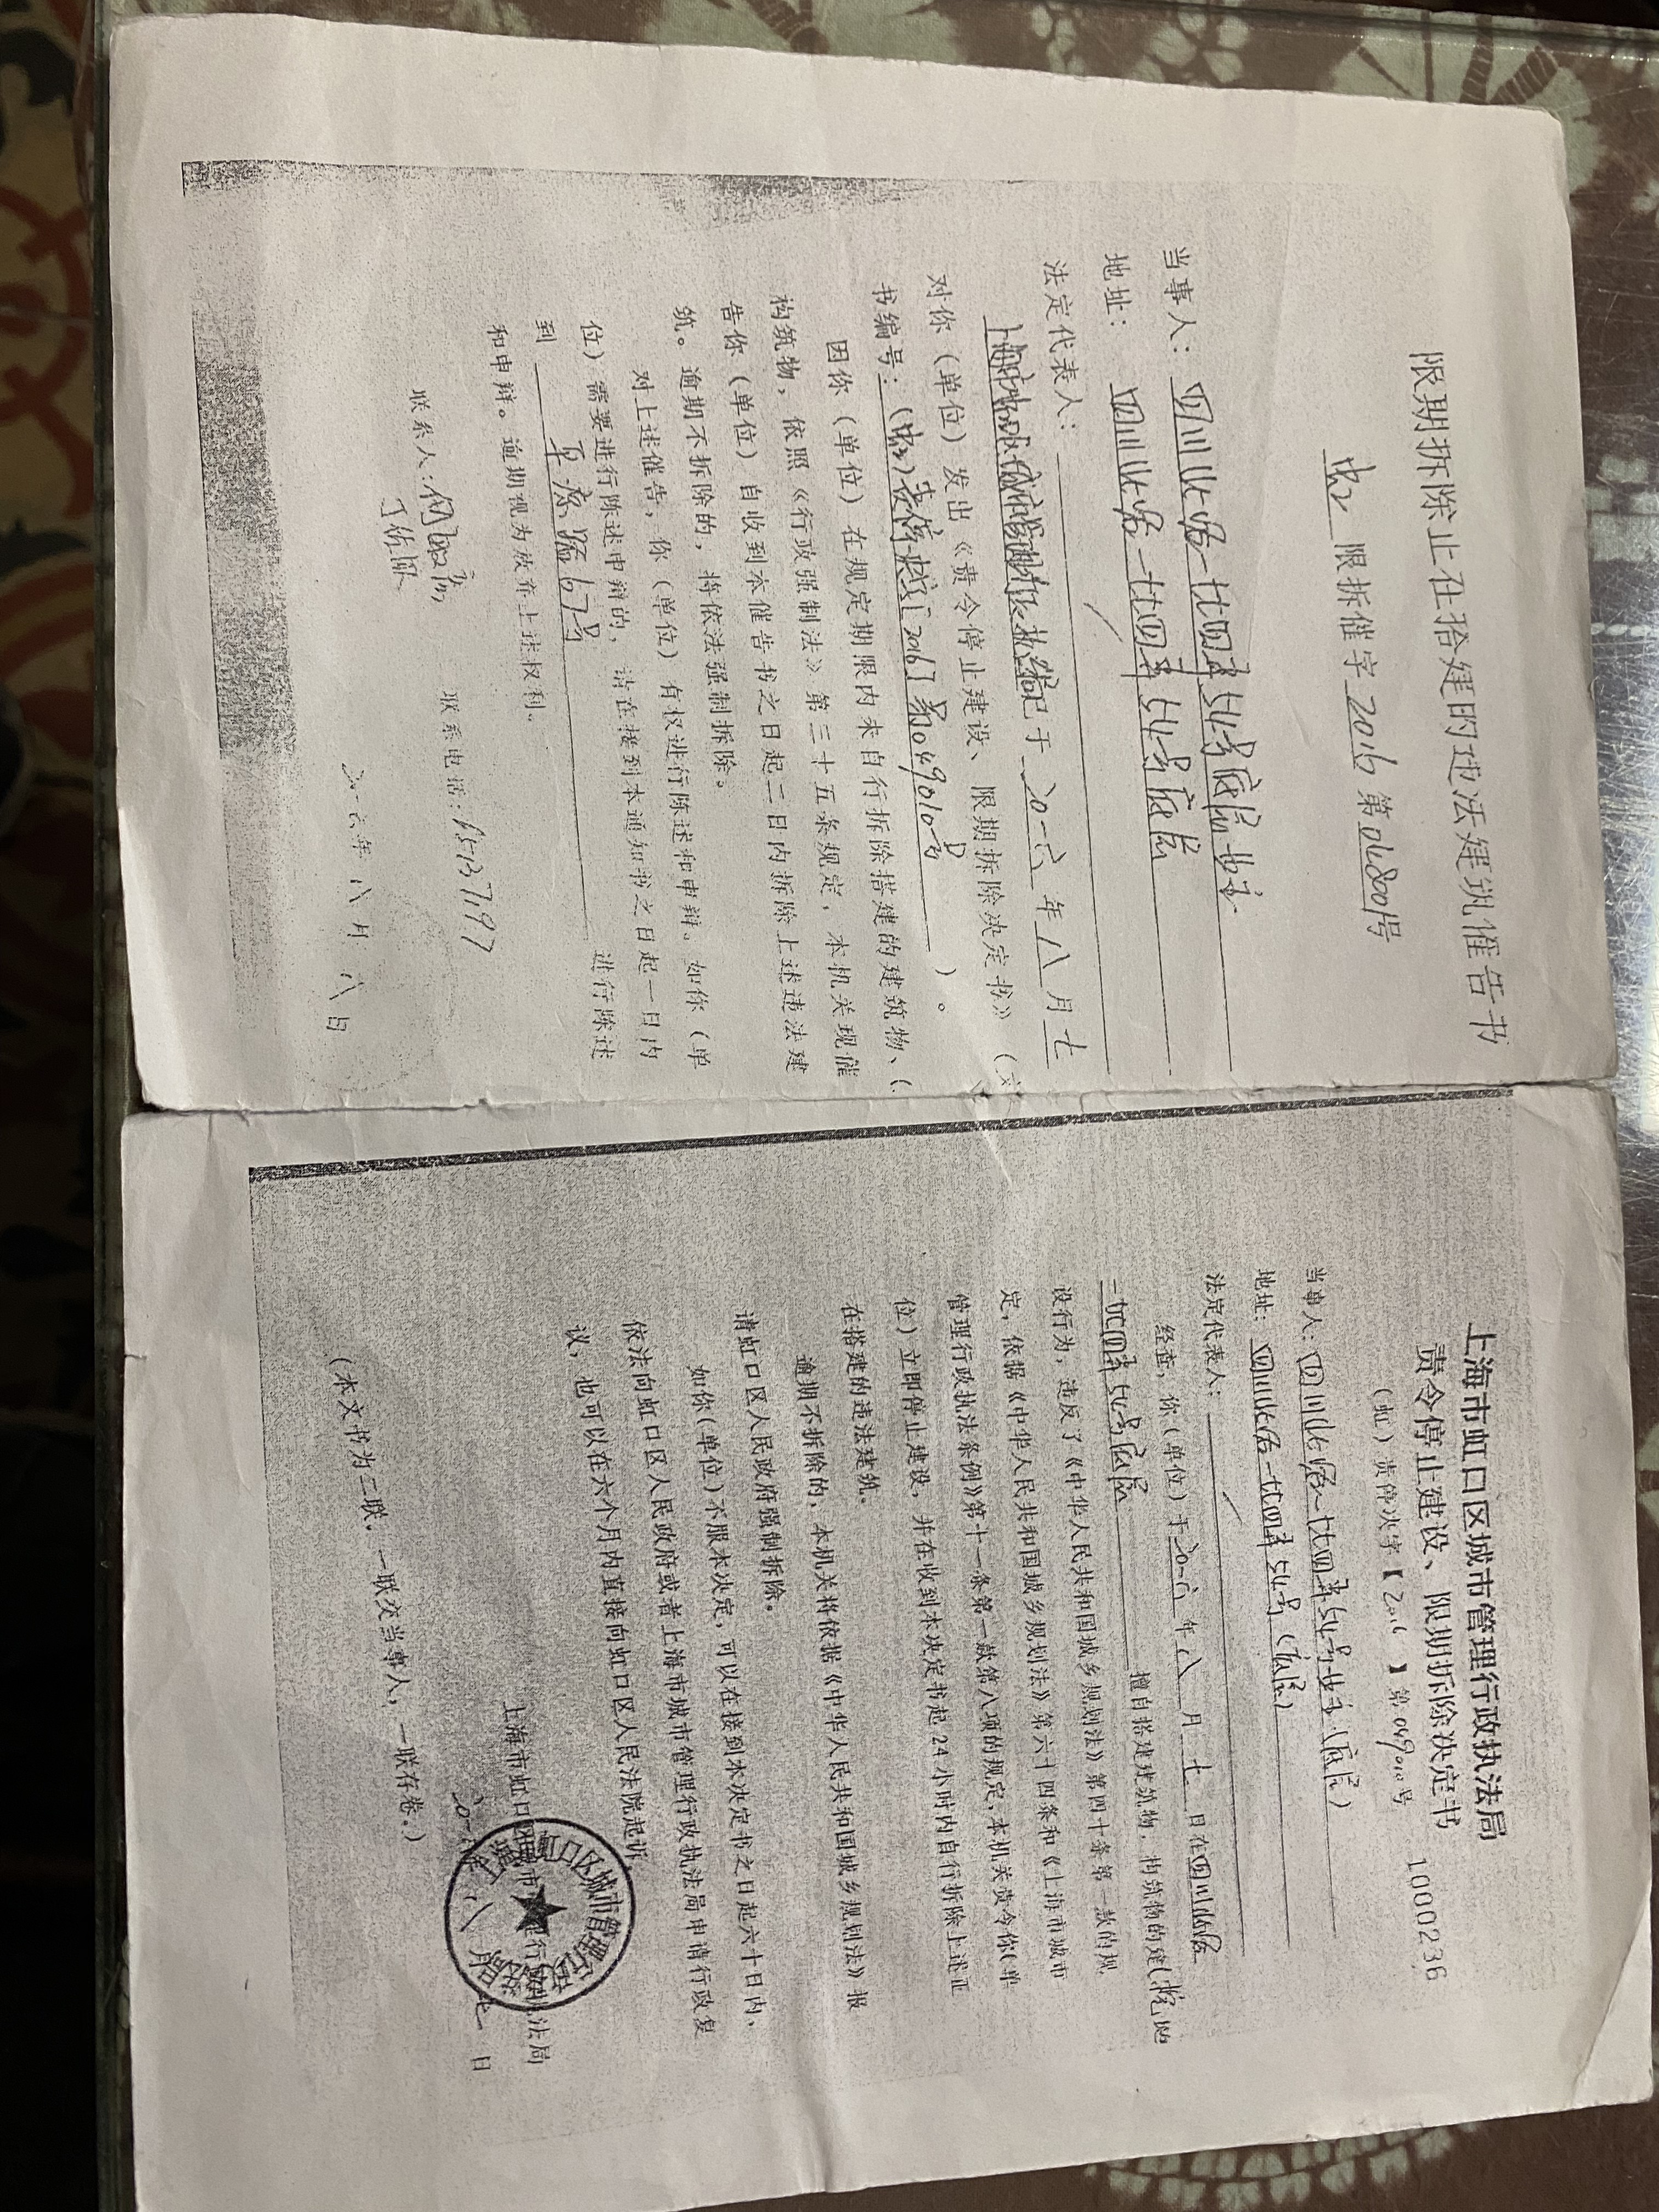 限期拆除正在搭建的违法建筑催告书
虹 限拆催字2016第
当事人：四川北路一七四弄54号底层业主
地址：四川北路一七四弄54号底层
法定代表人：
上海市虹口区城市管理行政执法局已于二〇一六年八月七
对你（单位）发出《责令停止建设、限期拆除决定书》（文
书编号：（虹）责停决字[2016]第049010号）。
因你（单位）在规定期限内未自行拆除搭建的建筑物、（
构筑物，依照《行政强制法》第三十五条规定，本机关现催
告你（单位）自收到本催告书之日起三日内拆除上述违法建
筑。逾期不拆除的，将依法强制拆除。
对上述催告，你（单位）有权进行陈述和申辩。如你（单
位）需要进行陈述申辩的，请在接到本通知书之日起一日内
到 67号 进行陈述
和申辩。逾期视为放弃上述权利。
联系人： 联系电话：65137197
二〇一六年八月八日
上海市虹口区城市管理行政执法局
责令停止建设、限期拆除决定书
1000236
（虹）责停决字【2016】第049010号
当事人：四川北路一七四弄54号业主（底层）
地址：四川北路一七四弄54号（底层）
法定代表人：
经查，你（单位）于二〇一六年八月七日在四川北路
一七四弄54号底层 擅自搭建建筑物、构筑物的建
设行为，违反了《中华人民共和国城乡规划法》第四十条第一款的规
定，依据《中华人民共和国城乡规划法》第六十四条和《上海市城市
管理行政执法条例》第十一条第一款第八项的规定，本机关责令你（单
位）立即停止建设，并在收到本决定书起24小时内自行拆除上述正
在搭建的违法建筑。
逾期不拆除的，本机关将依据《中华人民共和国城乡规划法》报
请虹口区人民政府强制拆除。
如你（单位）不服本决定，可以在接到本决定书之日起六十日内，
依法向虹口区人民政府或者上海市城市管理行政执法局申请行政复
议，也可以在六个月内直接向虹口区人民法院起诉。
上海市虹口区城市管理行政执法局
二〇一六年八月七日
（本文书为二联。一联交当事人，一联存卷。）